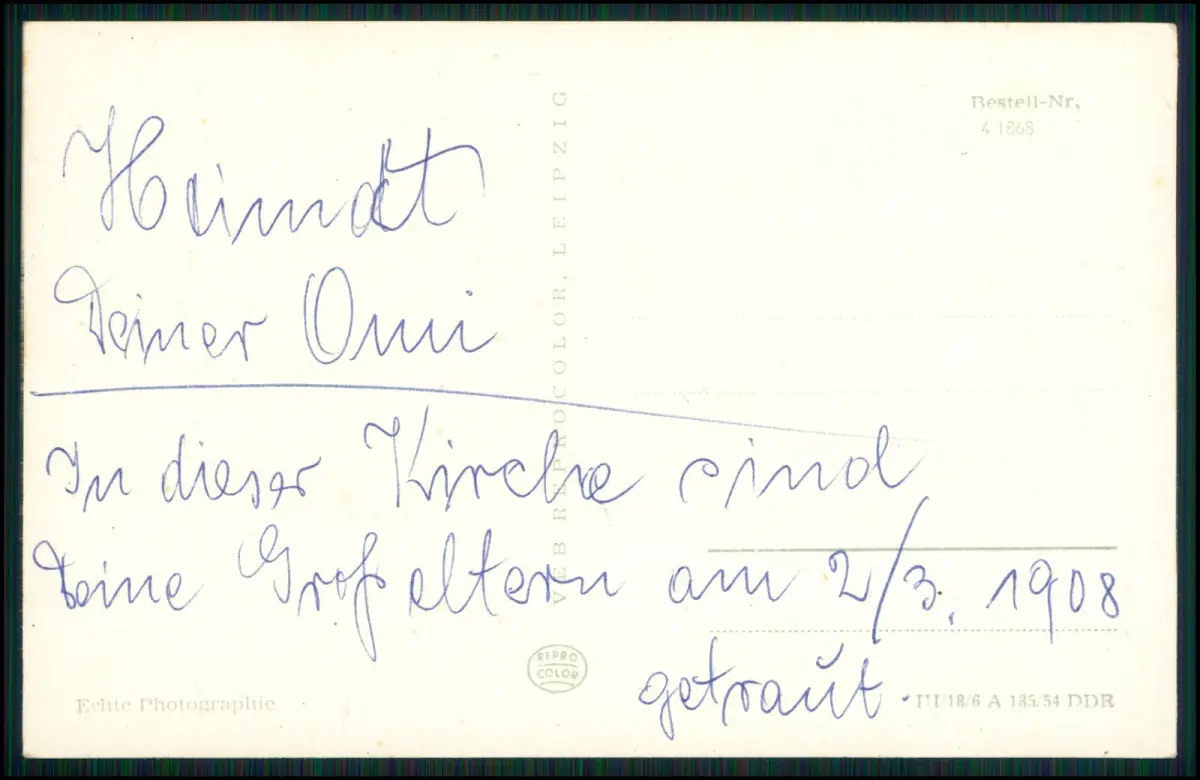 Bestell-Nr,
4 1868
Heimat
Deiner Omi
In dieser Kirche sind
Deine Großeltern am 2/3. 1908
getraut.
VEB REPROCOLOR, LEIPZIG
REPRO
COLOR
Echte Photographie
III/18/6 A 185/54 DDR